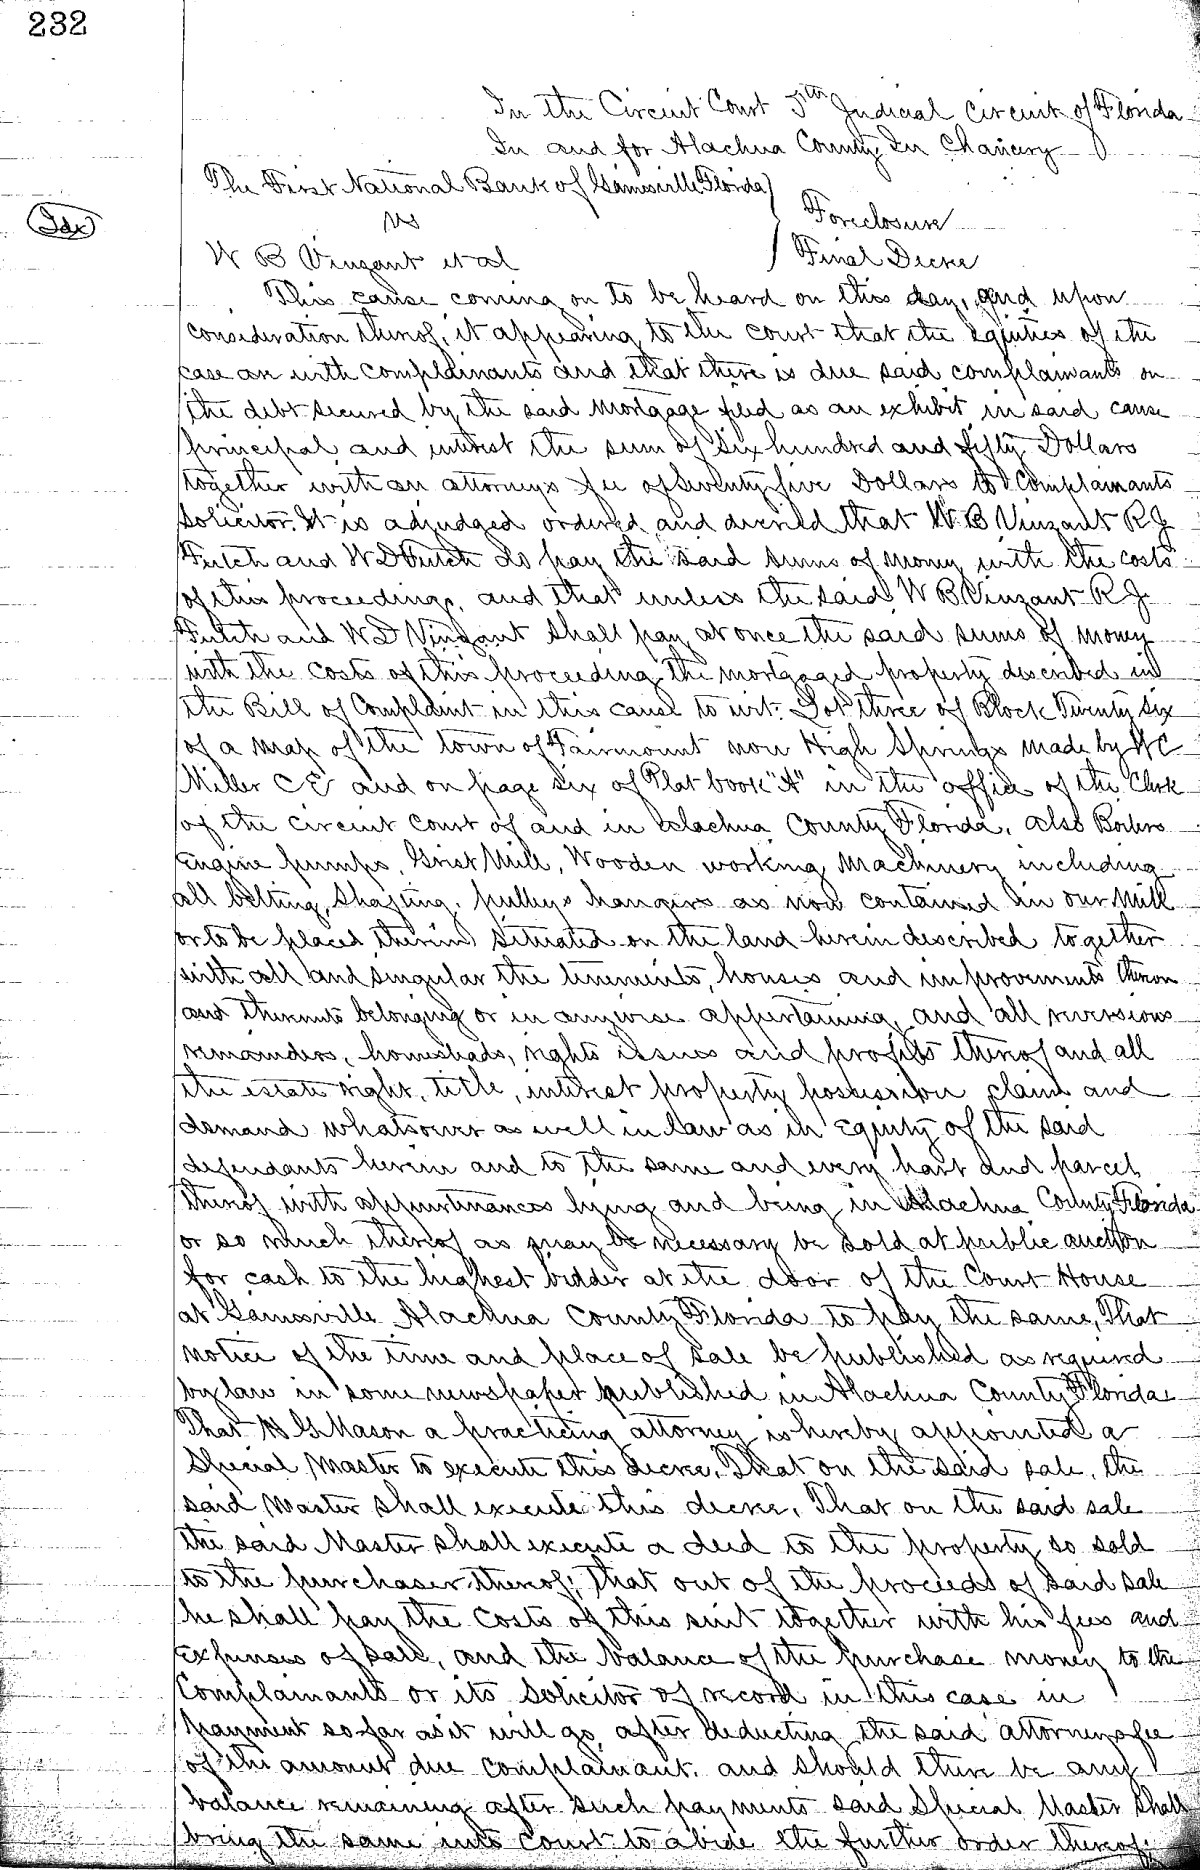 232
In the Circuit Court 5th Judicial Circuit of Florida
In and for Alachua County, In Chancery
The First National Bank of Gainesville Florida }
Idx
vs
Foreclosure
W B Vinzant et al
Final Decree
This cause coming on to be heard on this day, and upon
consideration thereof, it appearing to the court that the equities of the
case are with complainants and that there is due said complainants on
the debt secured by the said mortgage filed as an exhibit in said cause
principal and interest the sum of Six hundred and fifty Dollars
together with an attorneys fee of Seventy five Dollars to Complainants
Solicitor. It is adjudged ordered and decreed that W. B Vinzant R J
Futch and W D Futch do pay the said sums of money with the costs
of this proceeding, and that unless the said W B Vinzant R J
Futch and W D Vinzant shall pay at once the said sums of money
with the costs of this proceeding the mortgaged property described in
the Bill of Complaint in this cause to wit: Lot three of Block Twenty Six
of a map of the town of Fairmount now High Springs made by
Miller C E and on page six of Plat book "A" in the office of the Clerk
of the circuit court of and in Alachua County Florida, also Boilers
Engine pumps, Grist Mill, Wooden working Machinery including
all belting, shafting, pulleys hangers as now contained in our Mill
or to be placed therein situated on the land herein described together
with all and singular the tenements, houses and improvements thereon
and thereunto belonging or in anywise appertaining, and all reversions
remainders, homesteads, rights issues and profits thereof and all
the estate right, title, interest property possession claim and
demand whatsoever as well in law as in Equity of the said
defendants herein and to the same and every part and parcel
thereof with appurtenances lying and being in Alachua County Florida
or so much thereof as may be necessary be sold at public auction
for cash to the highest bidder at the door of the Court House
at Gainesville Alachua County Florida to pay the same, That
notice of the time and place of sale be published as required
by law in some newspaper published in Alachua County Florida.
That G Mason a practicing attorney is hereby appointed a
Special Master to execute this decree. That on the said sale, the
said Master shall execute this decree, That on the said sale
the said Master shall execute a deed to the property so sold
to the purchaser thereof; That out of the proceeds of said sale
he shall pay the costs of this suit together with his fees and
Expenses of sale, and the balance of the purchase money to the
Complainants or its Solicitor of record in this case in
payment so far as it will go, after deducting the said attorneys fee
of the amount due complainant, and should there be any
balance remaining after such payments said Special Master shall
bring the same into Court to abide the further order thereof.